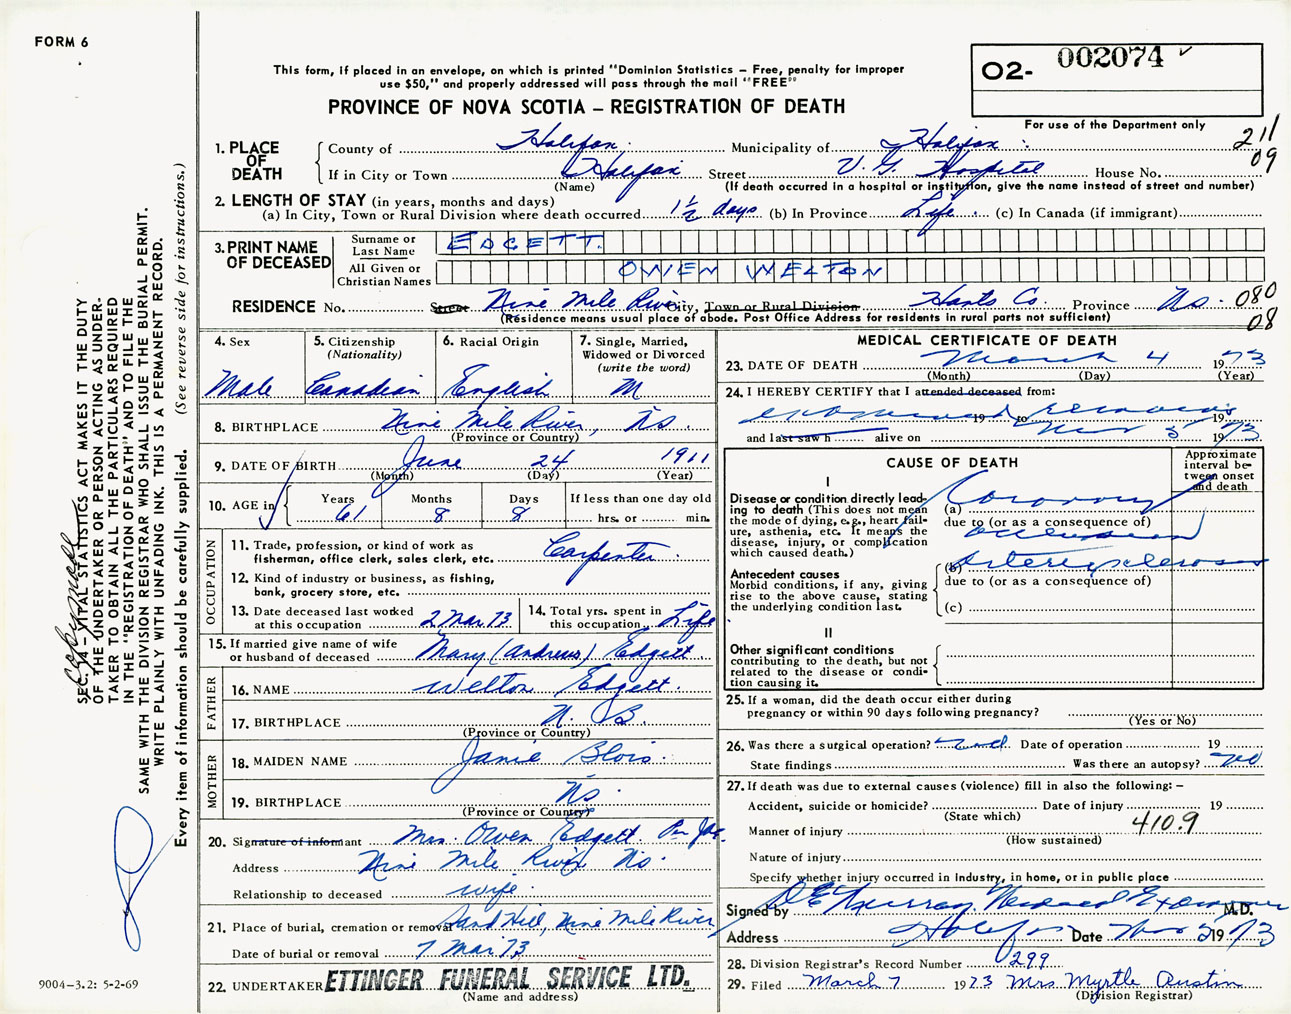 FORM 6
This form, if placed in an envelope, on which is printed "Dominion Statistics – Free, penalty for improper
use $50," and properly addressed will pass through the mail "FREE"
PROVINCE OF NOVA SCOTIA – REGISTRATION OF DEATH
02- 002074
For use of the Department only
211
09
1. PLACE OF DEATH
County of Halifax Municipality of Halifax
If in City or Town Halifax Street V. G. Hospital House No.
(Name) (If death occurred in a hospital or institution, give the name instead of street and number)
2. LENGTH OF STAY (in years, months and days)
(a) In City, Town or Rural Division where death occurred 1½ days (b) In Province Life (c) In Canada (if immigrant)
3. PRINT NAME OF DECEASED
Surname or Last Name EDGETT.
All Given or Christian Names OWEN WELTON
RESIDENCE No. Street Nine Mile River City, Town or Rural Division Hants Co. Province Ns. 080
(Residence means usual place of abode. Post Office Address for residents in rural parts not sufficient) 08
4. Sex Male
5. Citizenship (Nationality) Canadian
6. Racial Origin English
7. Single, Married, Widowed or Divorced (write the word) M
8. BIRTHPLACE Nine Mile River, Ns.
(Province or Country)
9. DATE OF BIRTH June 24 1911
(Month) (Day) (Year)
10. AGE in Years 61 Months 8 Days 8 If less than one day old hrs. or min.
OCCUPATION
11. Trade, profession, or kind of work as
fisherman, office clerk, sales clerk, etc. Carpenter.
12. Kind of industry or business, as fishing,
bank, grocery store, etc.
13. Date deceased last worked
at this occupation 2 Mar 73
14. Total yrs. spent in
this occupation Life
15. If married give name of wife
or husband of deceased Mary (Andrews) Edgett.
FATHER
16. NAME Welton Edgett.
17. BIRTHPLACE N. B.
(Province or Country)
MOTHER
18. MAIDEN NAME Janie Blois.
19. BIRTHPLACE Ns
(Province or Country)
20. Signature of informant Mrs. Owen Edgett Per
Address Nine Mile River Ns.
Relationship to deceased wife.
21. Place of burial, cremation or removal Sand Hill, Nine Mile River
Date of burial or removal 7 Mar 73
22. UNDERTAKER ETTINGER FUNERAL SERVICE LTD.
(Name and address)
MEDICAL CERTIFICATE OF DEATH
23. DATE OF DEATH March 4 1973
(Month) (Day) (Year)
24. I HEREBY CERTIFY that I attended deceased from:
examined 19 to remains 19
and last saw h alive on Mar 5 1973
CAUSE OF DEATH
Approximate interval between onset and death
I
Disease or condition directly leading to death (This does not mean
the mode of dying, e.g., heart failure, asthenia, etc. It means the
disease, injury, or complication
which caused death.)
(a) Coronary
due to (or as a consequence of)
occlusion
Antecedent causes
Morbid conditions, if any, giving
rise to the above cause, stating
the underlying condition last.
(b) Arteriosclerosis
due to (or as a consequence of)
(c)
II
Other significant conditions
contributing to the death, but not
related to the disease or condition causing it.
25. If a woman, did the death occur either during
pregnancy or within 90 days following pregnancy?
(Yes or No)
26. Was there a surgical operation? Date of operation 19
State findings Was there an autopsy? no
27. If death was due to external causes (violence) fill in also the following: –
Accident, suicide or homicide? Date of injury 19
(State which)
Manner of injury 410.9
(How sustained)
Nature of injury
Specify whether injury occurred in industry, in home, or in public place
Signed by D E Murray. Medical Examiner M.D.
Address Halifax Date Mar 5 1973
28. Division Registrar's Record Number 299
29. Filed March 7 1973 Mrs Myrtle Austin
(Division Registrar)
SEC. – VITAL STATISTICS ACT MAKES IT THE DUTY
OF THE UNDERTAKER OR PERSON ACTING AS UNDERTAKER TO OBTAIN ALL THE PARTICULARS REQUIRED
IN THE "REGISTRATION OF DEATH" AND TO FILE THE
SAME WITH THE DIVISION REGISTRAR WHO SHALL ISSUE THE BURIAL PERMIT.
WRITE PLAINLY WITH UNFADING INK. THIS IS A PERMANENT RECORD.
Every item of information should be carefully supplied. (See reverse side for instructions.)
9004–3.2: 5-2-69